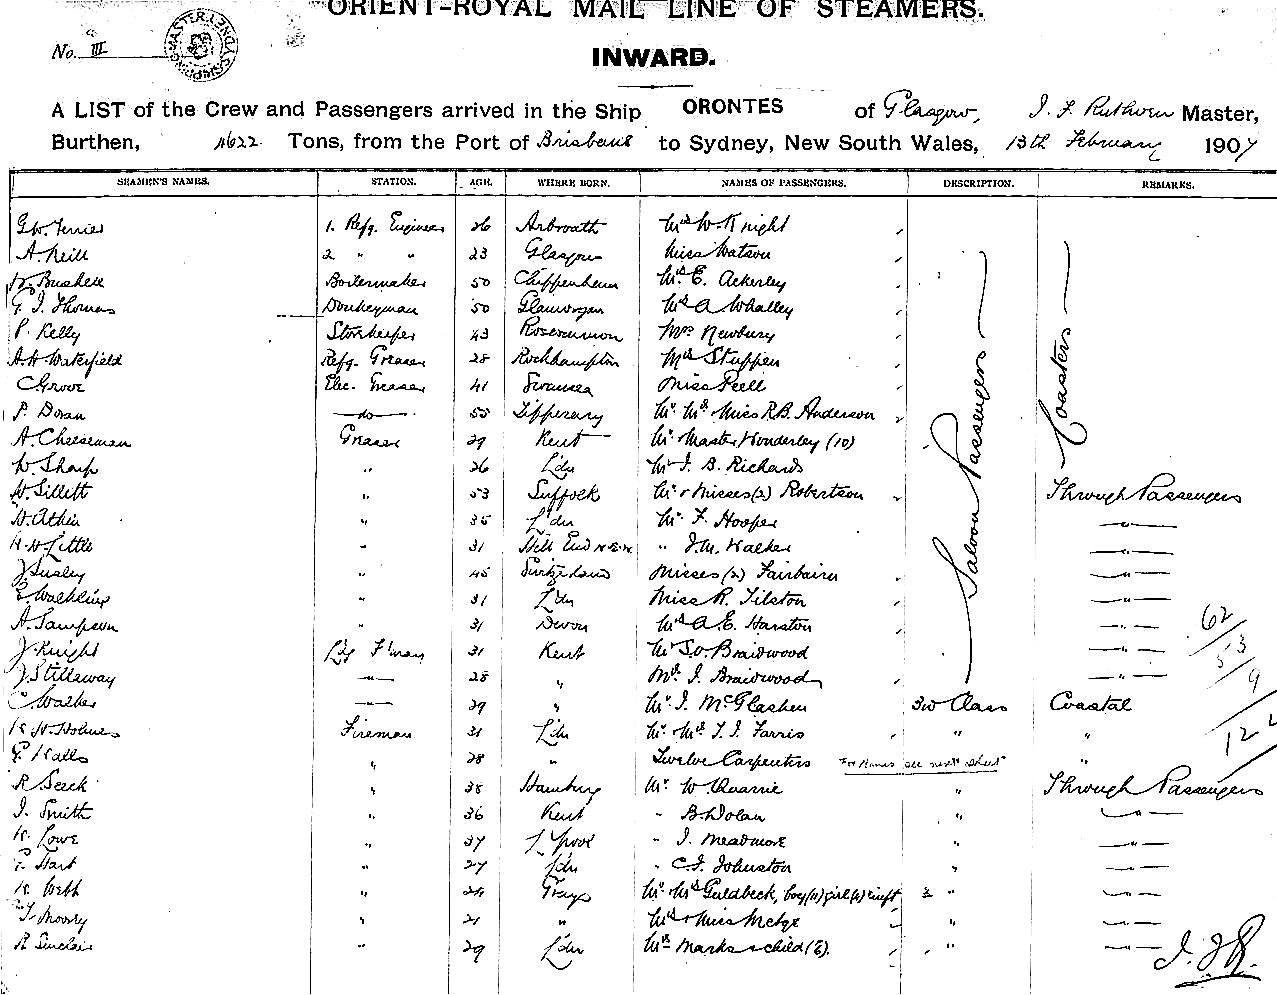 ORIENT-ROYAL MAIL LINE OF STEAMERS.
No. III
INWARD.
A LIST of the Crew and Passengers arrived in the Ship ORONTES of Glasgow, J. F. Ruthven Master,
Burthen, 4622 Tons, from the Port of Brisbane to Sydney, New South Wales, 13th February 1907
SEAMEN'S NAMES. STATION. AGE. WHERE BORN. NAMES OF PASSENGERS. DESCRIPTION. REMARKS.
G.W. Ferrier 1. Refg. Engineer 26 Arbroath Mrs W. Knight
A. Neill 2 " " 23 Glasgow Miss Watson
W. Bushell Boilermaker 50 Chippenham Mrs E. Ackerley
G. J. Thomas Donkeyman 50 Glamorgan Mrs A Whalley
P. Kelly Storekeeper 43 Roscommon Mrs Newbury
A.H. Waterfield Refg. Greaser 28 Rockhampton Mrs Stuppen
C Grove Elec. Greaser 41 Swansea Miss Peell
P. Doran do 55 Tipperary Mr Mrs Miss R.B. Anderson
A. Cheeseman Greaser 29 Kent Mr Master Wonderley (10)
W. Sharp " 26 Ldn Mr J. B. Richards
Saloon Passengers
Coasters
W. Sillett " 53 Suffolk Mr & Misses (2) Robertson Through Passengers
W. Athin " 35 Ldn Mr F. Hooper "
H.W. Little " 31 Mile End N.E.N " J.M. Walker "
J " 45 Switzerland Misses (2) Fairbairn "
E. " 31 Ldn Miss R. Tilston "
A. Sampson " 31 Devon Mrs A E. Harston " 62
J. Knight Ldg Fireman 31 Kent Mr J.O. Braidwood " 53
J. Stillaway " 28 " Mrs J. Braidwood " 9
C Walker " 29 " Mr J. McGlashen 3rd Class Coastal
H. W. Holmes Fireman 31 Ldn Mr & Mrs T. J. Farris " " 122
G. Halls " 28 " Twelve Carpenters For Names see next sheet "
R Serck " 38 Hamburg Mr W Quarrie " Through Passengers
J. Smith " 36 Kent " B. Dolan " "
H. Lowe " 37 L'pool " J. Meadmore " "
F. Hart " 27 Ldn " C.J. Johnston " "
H. Webb " 24 Grays Mr Mrs Guldbeck, boy (11) girl (4) inft 3 " "
T. Moory " 21 " Mrs & Miss Metge " "
R Sinclair " 29 Ldn Mrs Marks & child (6). " "
J.F.R.